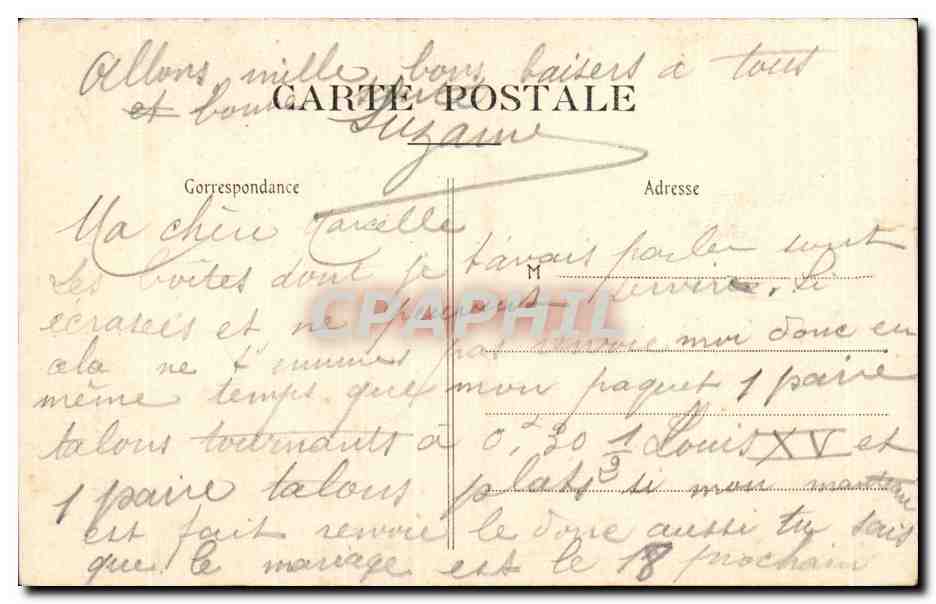 Allons mille bons baisers à tous
et bonne
CARTE POSTALE
Suzanne
Correspondance
Adresse
Ma chère Marcelle
Les boîtes dont je t'avais parler sont
M
écrasées et ne peuvent servire. Si
CPAPHIL
cela ne t'ennuies pas renvoie moi donc en
même temps que mon paquet 1 paire
talons tournants à 0,30 Louis XV et
1 paire talons plats si mon manteau
est fait renvoie le donc aussi tu sais
que le mariage est le 18 prochain